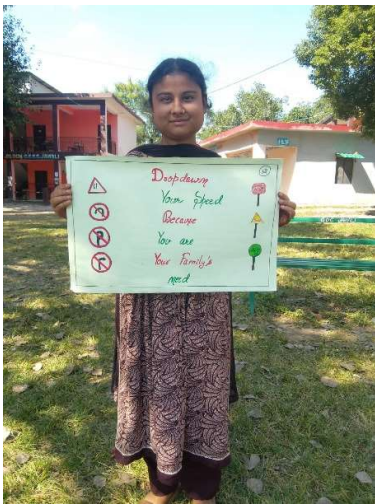 Dropdown
Your Speed
Because
You are
Your Family's
need